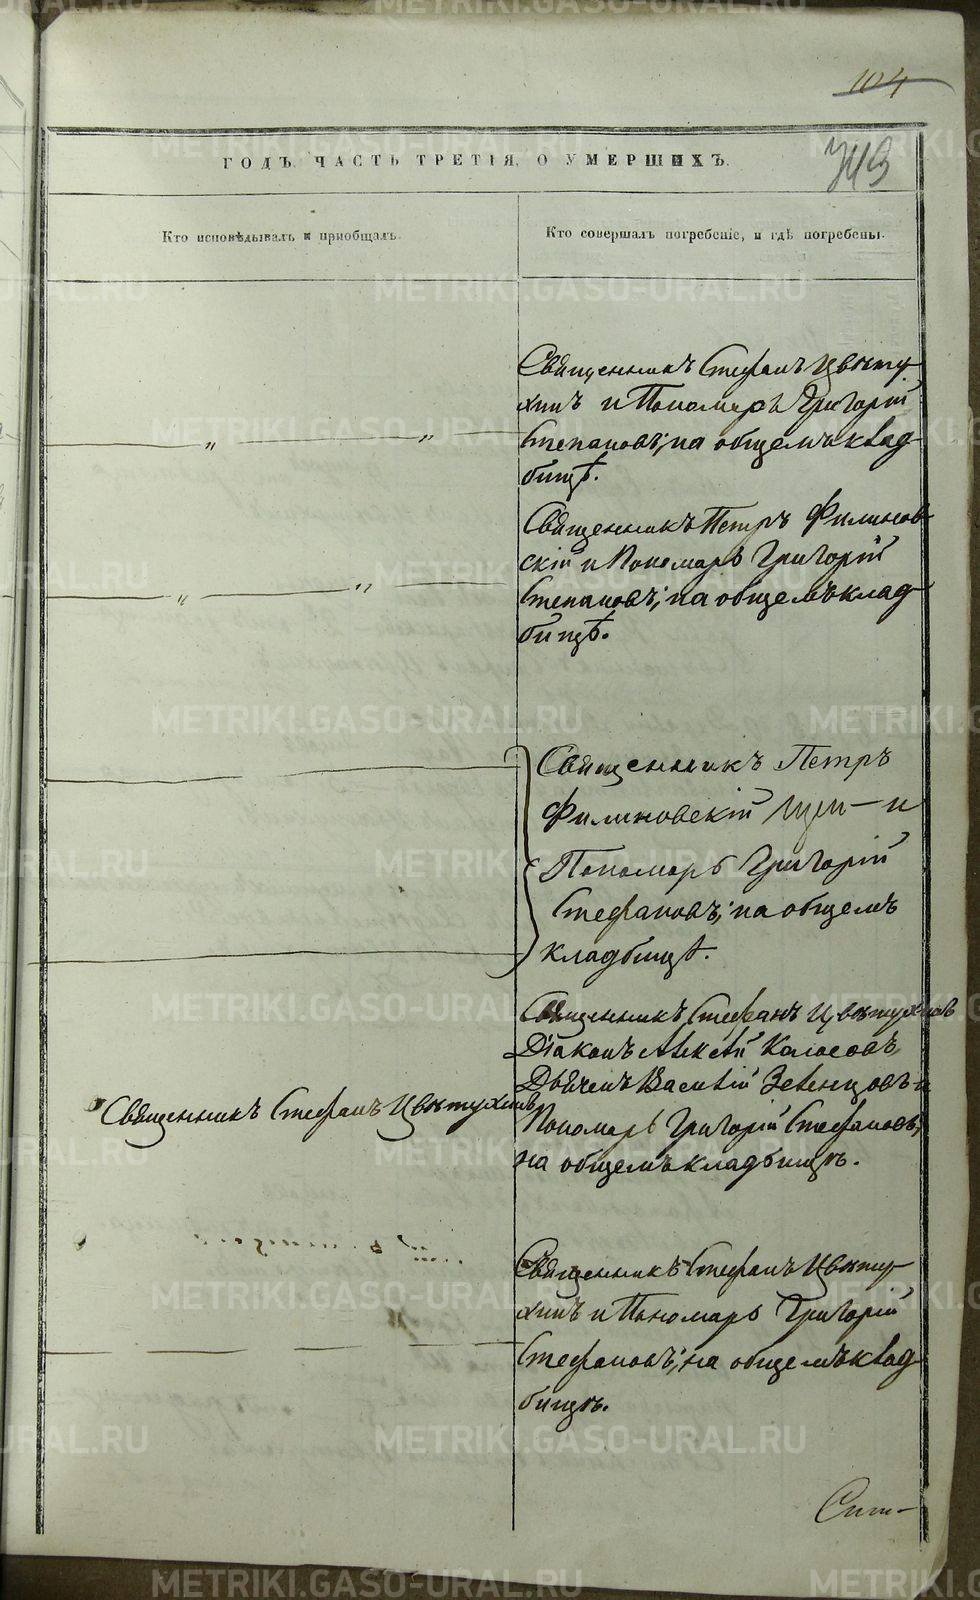 104
ГОДЪ. ЧАСТЬ ТРЕТІЯ, О УМЕРШИХЪ.
743
Кто исповѣдывалъ и пріобщалъ.
Кто совершалъ погребеніе, и гдѣ погребены.
Священникъ Стефанъ Цвѣту-
хинъ и Пономарь Григорій
Степановъ; на общемъ клад
бищѣ.
Священникъ Петръ Филинов-
скій и Пономарь Григорій
Степановъ; на общемъ клад
бищѣ.
Священникъ Петръ
Филиновскій и
Пономарь Григорій
Стефановъ; на общемъ
кладбищѣ.
Священникъ Стефанъ Цвѣтухинъ
Діаконъ Алексѣй Колосовъ,
Дьячекъ Василій Зеленцовъ и
Священникъ Стефанъ Цвѣтухинъ
Пономарь Григорій Стефановъ;
на общемъ кладбищѣ.
Священникъ Стефанъ Цвѣту-
хинъ и Пономарь Григорій
Стефановъ; на общемъ клад
бищѣ.
METRIKI.GASO-URAL.RU